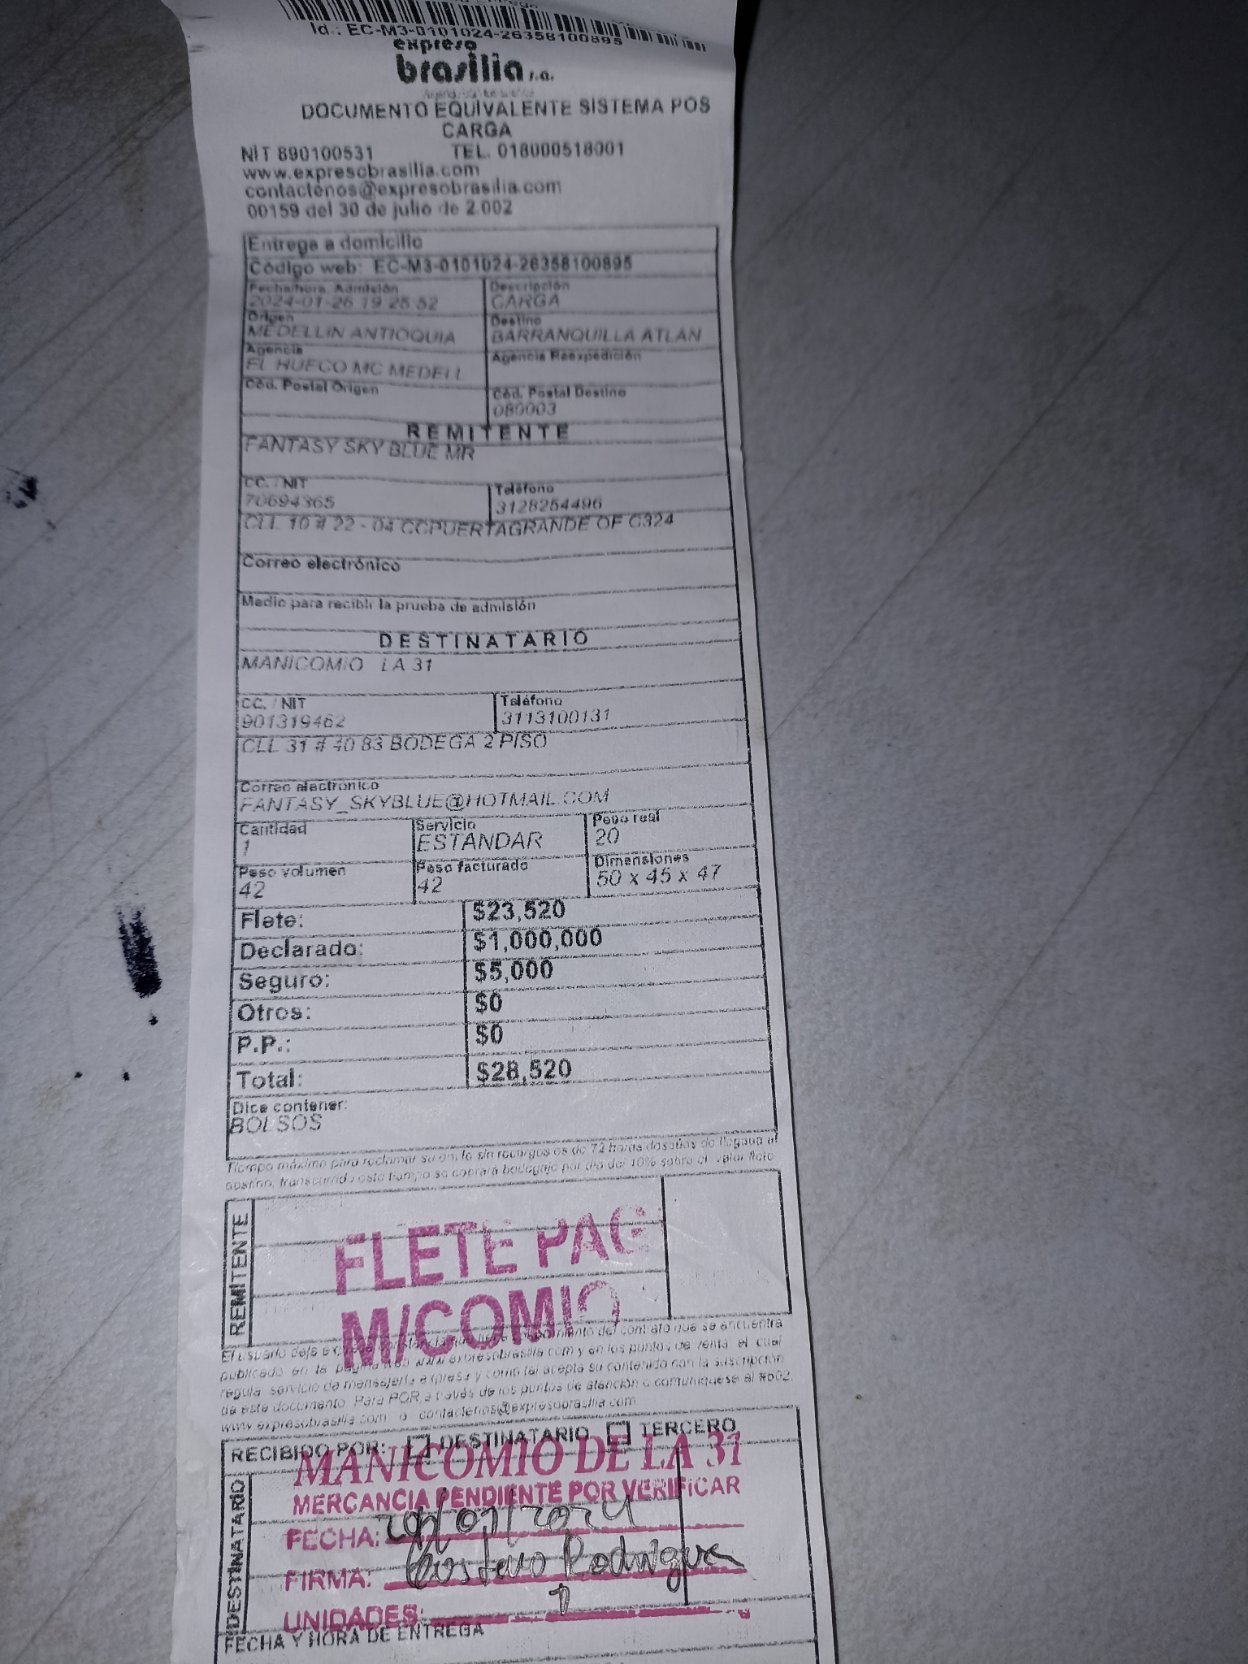 Id.: EC-M3-0101024-26358100895
expreso
brasilia s.a.
DOCUMENTO EQUIVALENTE SISTEMA POS
CARGA
NIT 890100531 TEL. 018000518001
www.expresobrasilia.com
contactenos@expresobrasilia.com
00159 del 30 de julio de 2.002
Entrega a domicilio
Código web: EC-M3-0101024-26358100895
Fecha/hora Admisión Descripción
2024-01-26 19:25:52 CARGA
Origen Destino
MEDELLIN ANTIOQUIA BARRANQUILLA ATLAN
Agencia Agencia Reexpedición
EL HUECO MC MEDELL
Cód. Postal Origen Cód. Postal Destino
080003
REMITENTE
FANTASY SKY BLUE MR
CC. / NIT Teléfono
70694365 3128254496
CLL 10 # 22 - 04 CCPUERTAGRANDE OF C324
Correo electrónico
Medio para recibir la prueba de admisión
DESTINATARIO
MANICOMIO LA 31
CC. / NIT Teléfono
901319462 3113100131
CLL 31 # 40 83 BODEGA 2 PISO
Correo electrónico
FANTASY_SKYBLUE@HOTMAIL.COM
Cantidad Servicio Peso real
1 ESTANDAR 20
Peso volumen Peso facturado Dimensiones
42 42 50 x 45 x 47
Flete: $23,520
Declarado: $1,000,000
Seguro: $5,000
Otros: $0
P.P.: $0
Total: $28,520
Dice contener:
BOLSOS
Tiempo máximo para reclamar su envío sin recargos es de 72 horas después de llegada al
destino, transcurrido este tiempo se cobrará bodegaje por día del 10% sobre el valor flete
REMITENTE
FLETE PAG
M/COMIO
El usuario deja del contrato que se encuentra
publicado en la página web www.expresobrasilia.com y en los puntos de venta el cual
regula servicio de mensajería expresa y como tal acepta su contenido con la suscripción
de este documento. Para PQR a través de los puntos de atención o comuníquese al #602.
www.expresobrasilia.com o contactenos@expresobrasilia.com
RECIBIDO POR: DESTINATARIO TERCERO
MANICOMIO DE LA 31
MERCANCIA PENDIENTE POR VERIFICAR
DESTINATARIO
FECHA: /01/2024
FIRMA: Gustavo Rodriguez
UNIDADES: 1
FECHA Y HORA DE ENTREGA